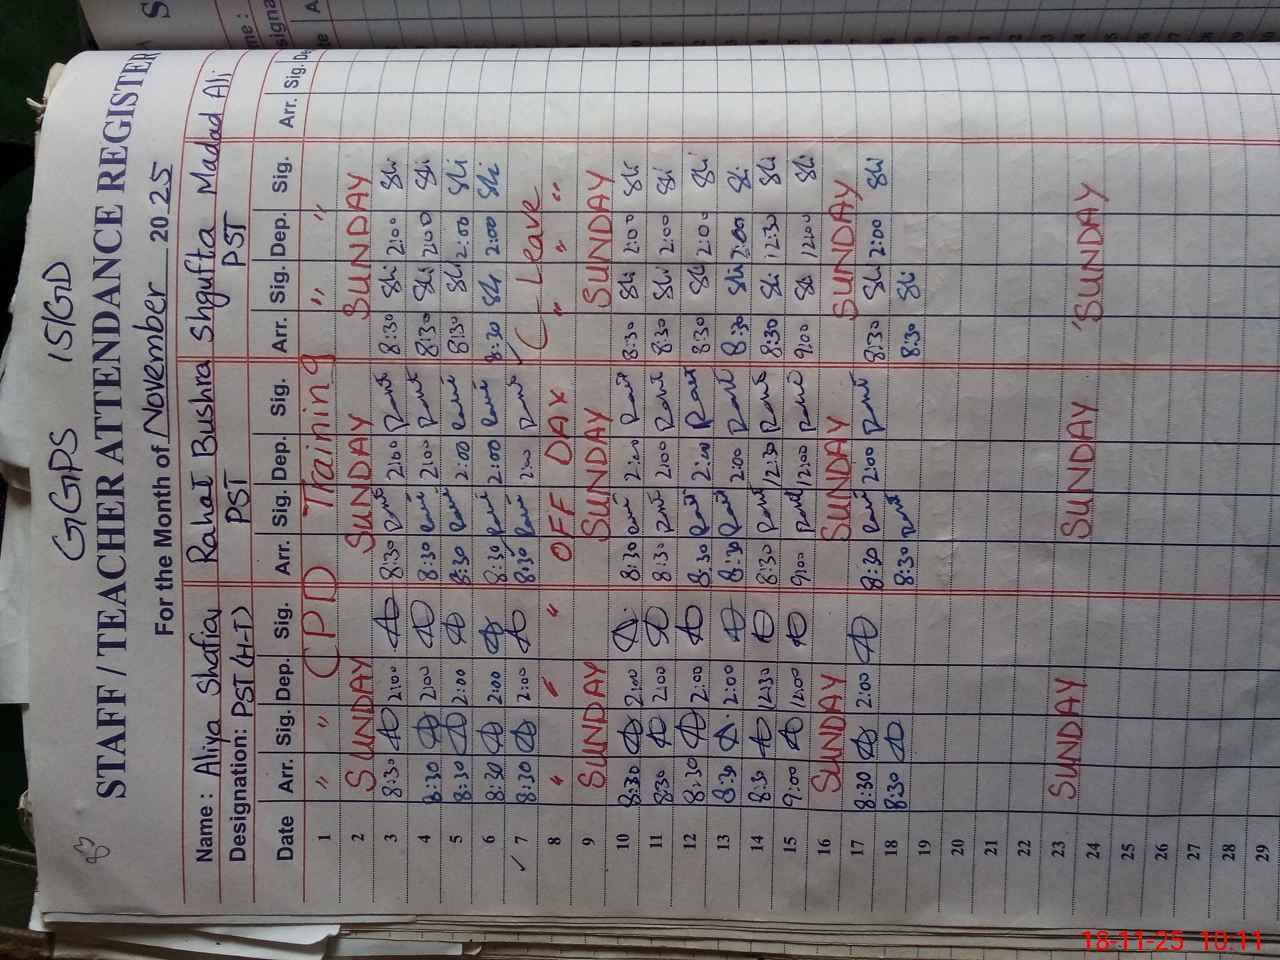 GGPS 15/GD
STAFF / TEACHER ATTENDANCE REGISTER
For the Month of November 2025
Name: Aliya Shafia Rahat Bushra Shgufta Madad Ali
Designation: PST (H-T) PST PST
Date Arr. Sig. Dep. Sig. Arr. Sig. Dep. Sig. Arr. Sig. Dep. Sig. Arr. Sig.
1 " " CPD Training " "
2 SUNDAY SUNDAY SUNDAY
3 8:30 2:00 8:30 2:00 8:30 2:00
4 8:30 2:00 8:30 2:00 8:30 2:00
5 8:30 2:00 8:30 2:00 8:30 2:00
6 8:30 2:00 8:30 2:00 8:30 2:00
7 8:30 2:00 8:30 2:00 Leave
8 " " " OFF DAY " " "
9 SUNDAY SUNDAY SUNDAY
10 8:30 2:00 8:30 2:00 8:30 2:00
11 8:30 2:00 8:30 2:00 8:30 2:00
12 8:30 2:00 8:30 2:00 8:30 2:00
13 8:30 2:00 8:30 2:00 8:30 2:00
14 8:30 12:30 8:30 12:30 8:30 12:30
15 9:00 12:00 9:00 12:00 9:00 12:00
16 SUNDAY SUNDAY SUNDAY
17 8:30 2:00 8:30 2:00 8:30 2:00
18 8:30 8:30 8:30
19
20
21
22
23 SUNDAY SUNDAY SUNDAY
24
25
26
27
28
29
18-11-25 10:11